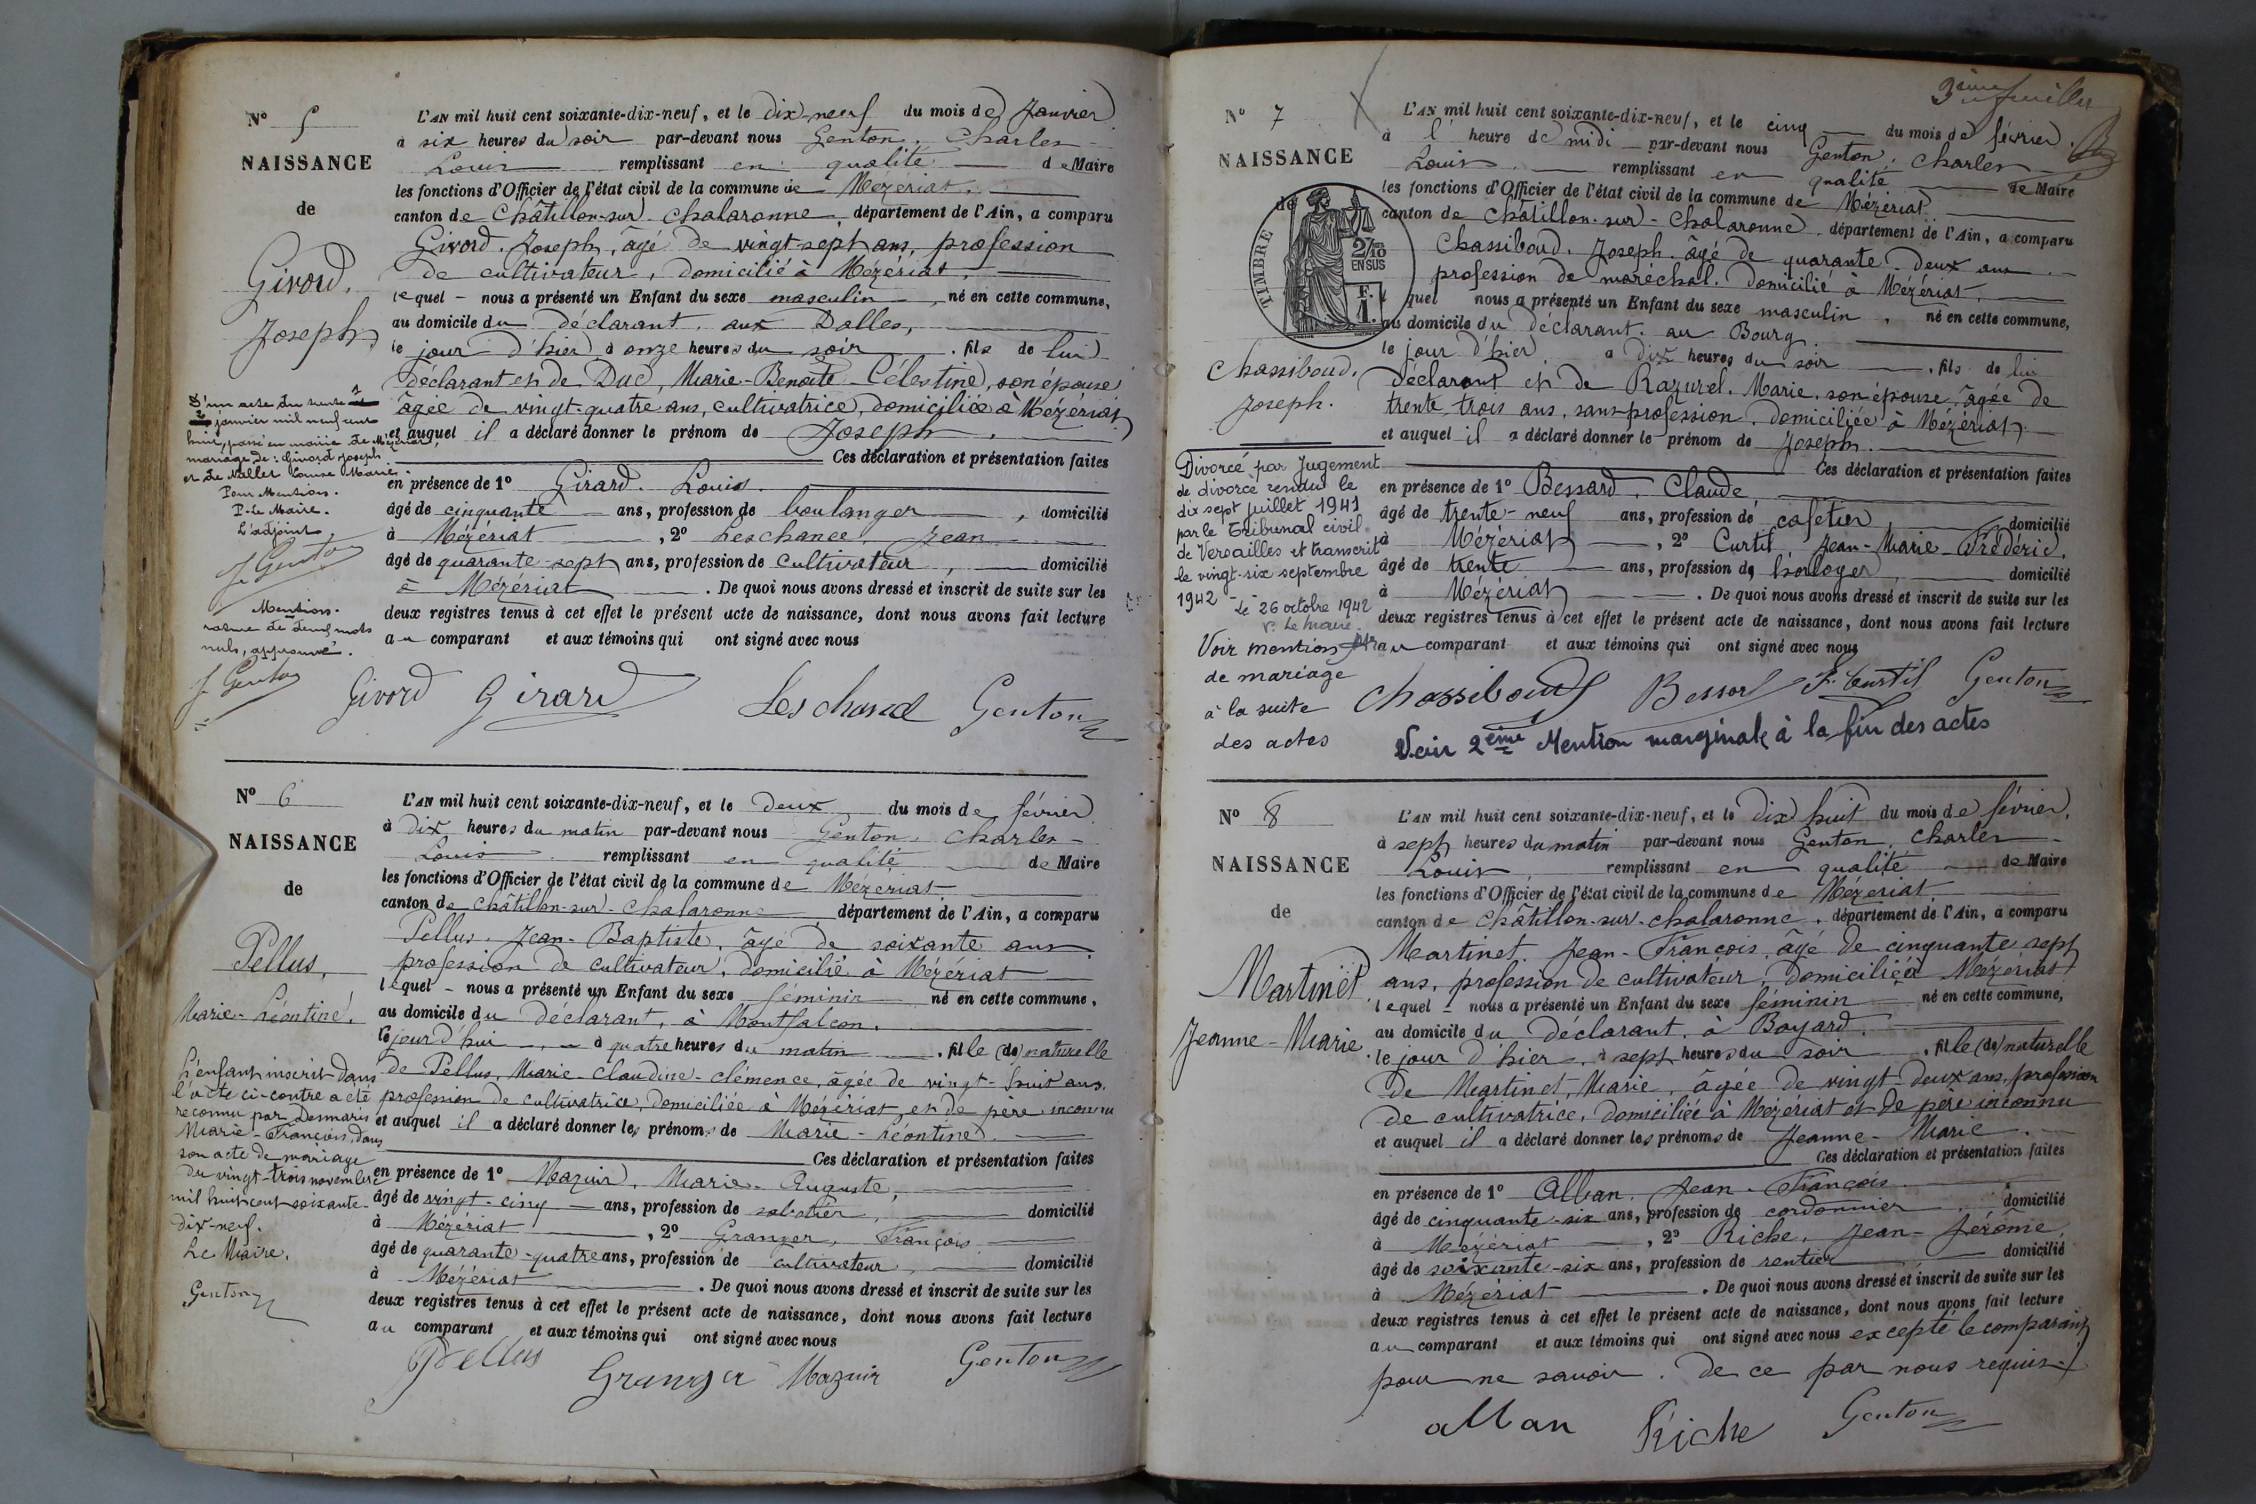 N° 5
NAISSANCE
de
Givord,
Joseph
D'un acte du trente 1
janvier mil neuf cent
huit, passé en mairie de Mézériat,
mariage de : Givord Joseph
et de Nallet Louise Marie
Pour Mention.
P. Le Maire.
L'adjoint
J. Genton
Mention.
rature de deux mots
nuls, approuvé.
J. Genton
L'AN mil huit cent soixante-dix-neuf, et le dix-neuf du mois de Janvier
à six heures du soir par-devant nous Genton, Charles-
Louis remplissant en qualité de Maire
les fonctions d'Officier de l'état civil de la commune de Mézériat.
canton de Châtillon-sur-Chalaronne département de l'Ain, a comparu
Givord. Joseph, âgé de vingt-sept ans, profession
de cultivateur, domicilié à Mézériat,
lequel - nous a présenté un Enfant du sexe masculin, né en cette commune,
au domicile du déclarant. aux Dalles,
le jour d'hier à onze heures du soir. fils de lui
déclarant et de Duc, Marie-Benoîte-Célestine, son épouse
âgée de vingt-quatre ans, cultivatrice, domiciliée à Mézériat
et auquel il a déclaré donner le prénom de Joseph.
Ces déclaration et présentation faites
en présence de 1° Girard. Louis.
âgé de cinquante ans, profession de boulanger, domicilié
à Mézériat, 2° Leschance, Jean
âgé de quarante-sept ans, profession de cultivateur, domicilié
à Mézériat. De quoi nous avons dressé et inscrit de suite sur les
deux registres tenus à cet effet le présent acte de naissance, dont nous avons fait lecture
au comparant et aux témoins qui ont signé avec nous
Givord Girard Leschance Genton
N° 6
NAISSANCE
de
Pellus,
Marie-Léontine.
L'enfant inscrit dans
l'acte ci-contre a été
reconnu par Desmaris
Marie-François, dans
son acte de mariage
du vingt-trois novembre
mil huit cent soixante-
dix-neuf.
Le Maire,
Genton
L'AN mil huit cent soixante-dix-neuf, et le deux du mois de février
à dix heures du matin par-devant nous Genton, Charles-
Louis remplissant en qualité de Maire
les fonctions d'Officier de l'état civil de la commune de Mézériat
canton de Châtillon-sur-Chalaronne département de l'Ain, a comparu
Pellus, Jean-Baptiste, âgé de soixante ans
profession de cultivateur, domicilié à Mézériat
lequel - nous a présenté un Enfant du sexe féminin né en cette commune,
au domicile du déclarant, à Montfalcon,
le jour d'hui à quatre heures du matin. fille (de) naturelle
de Pellus, Marie-Claudine-Clémence, âgée de vingt-huit ans,
profession de cultivatrice, domiciliée à Mézériat, et de père inconnu
et auquel il a déclaré donner les prénoms de Marie-Léontine.
Ces déclaration et présentation faites
en présence de 1° Mazuir, Marie-Auguste,
âgé de vingt-cinq ans, profession de sabotier, domicilié
à Mézériat, 2° Granger, François
âgé de quarante-quatre ans, profession de cultivateur, domicilié
à Mézériat. De quoi nous avons dressé et inscrit de suite sur les
deux registres tenus à cet effet le présent acte de naissance, dont nous avons fait lecture
au comparant et aux témoins qui ont signé avec nous
Pellus Granger Mazuir Genton
3ème feuillet
N° 7
NAISSANCE
de
TIMBRE
2/10
EN SUS
F.
1.
Chassiboud.
Joseph.
Divorcé par Jugement
de divorce rendu le
dix sept juillet 1941
par le Tribunal civil
de Versailles et transcrit
le vingt-six septembre
1942 - Le 26 octobre 1942
P. Le Maire.
Voir mention
de mariage
à la suite
des actes
L'AN mil huit cent soixante-dix-neuf, et le cinq du mois de février.
à l' heure de midi par-devant nous Genton, Charles
Louis. remplissant en qualité de Maire
les fonctions d'Officier de l'état civil de la commune de Mézériat.
canton de Châtillon-sur-Chalaronne. département de l'Ain, a comparu
Chassiboud. Joseph. âgé de quarante-deux ans
profession de maréchal. domicilié à Mézériat.
lequel nous a présenté un Enfant du sexe masculin, né en cette commune,
au domicile du déclarant. au Bourg.
le jour d'hier, à dix heures du soir. fils de lui
déclarant et de Razurel. Marie, son épouse, âgée de
trente-trois ans, sans profession. domiciliée à Mézériat
et auquel il a déclaré donner le prénom de Joseph.
Ces déclaration et présentation faites
en présence de 1° Bessard, Claude,
âgé de trente-neuf ans, profession de cafetier, domicilié
à Mézériat, 2° Curtil, Jean-Marie-Frédéric,
âgé de trente ans, profession de horloger, domicilié
à Mézériat. De quoi nous avons dressé et inscrit de suite sur les
deux registres tenus à cet effet le présent acte de naissance, dont nous avons fait lecture
au comparant et aux témoins qui ont signé avec nous
Chassiboud Bessard F. Curtil Genton
Voir 2ème Mention marginale à la fin des actes
N° 8
NAISSANCE
de
Martinet
Jeanne-Marie.
L'AN mil huit cent soixante-dix-neuf, et le dix huit du mois de février,
à sept heures du matin par-devant nous Genton, Charles
Louis, remplissant en qualité de Maire
les fonctions d'Officier de l'état civil de la commune de Mézériat.
canton de Châtillon-sur-Chalaronne. département de l'Ain, a comparu
Martinet. Jean-François, âgé de cinquante sept
ans, profession de cultivateur, domicilié à Mézériat
lequel - nous a présenté un Enfant du sexe féminin né en cette commune,
au domicile du déclarant, à Boyard.
le jour d'hier, à sept heures du soir. fille (de) naturelle
de Martinet, Marie, âgée de vingt-deux ans, profession
de cultivatrice, domiciliée à Mézériat et de père inconnu
et auquel il a déclaré donner les prénoms de Jeanne-Marie.
Ces déclaration et présentation faites
en présence de 1° Alban, Jean-François
âgé de cinquante-six ans, profession de cordonnier, domicilié
à Mézériat, 2° Riche, Jean-Jérôme
âgé de soixante-six ans, profession de rentier domicilié
à Mézériat. De quoi nous avons dressé et inscrit de suite sur les
deux registres tenus à cet effet le présent acte de naissance, dont nous avons fait lecture
au comparant et aux témoins qui ont signé avec nous excepté le comparant
pour ne savoir. de ce par nous requis.
alban Riche Genton